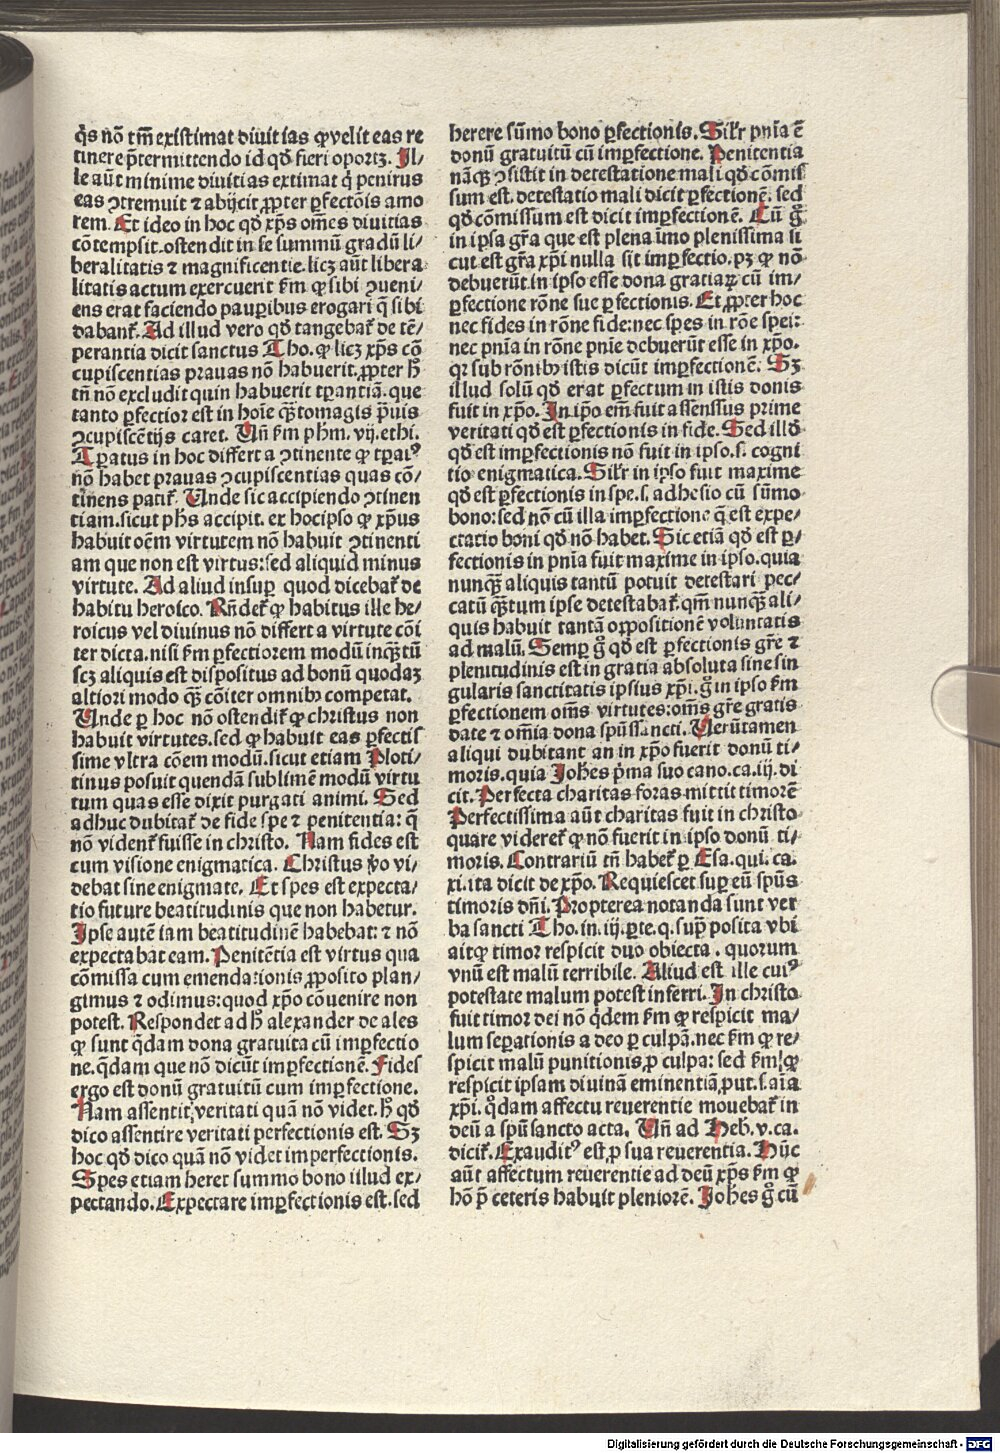 q̃s nõ tm̃ existimat diuitias ꝙ velit eas re
tinere p̃termittendo id qď fieri oportꝫ. Il/
le aũt minime diuitias extimat q̇ penitus
eas ꝯtremuit ⁊ abijcit ꝓpter ꝑfectõis amo
rem. Et ideo in hoc qď xp̃s om̃es diuitias
cõtempsit. ostendit in se summũ gradũ li/
beralitatis ⁊ magnificentie. licꝫ aũt libera
litatis actum exercuerit ẜm ꝙ sibi ꝯueni/
ens erat faciendo pauꝑibus erogari q̃ sibi
dabant᷑. Ad illud vero qď tangebat᷑ de tẽ/
perantia dicit sanctus Tho. ꝙ licꝫ xp̃s cõ
cupiscentias prauas nõ habuerit. ꝓpter h̃
tñ nõ excludit quin habuerit tꝑantiã. que
tanto ꝑfectior est in hoĩe q̃ꝫtomagis p̃uis
ꝯcupiscẽtijs caret. Vñ ẜm phm̃. vij. ethi.
Tꝑatus in hoc differt a ꝯtinente ꝙ tꝑatꝰ
nõ habet prauas ꝯcupiscentias quas cõ/
tinens patit᷑. Unde sic accipiendo ꝯtinen
tiam. sicut phs̃ accipit. ex hocipso ꝙ xp̃us
habuit oẽm virtutem nõ habuit ꝯtinenti
am que non est virtus: sed aliquid minus
virtute. Ad aliud insuꝑ quod dicebat᷑ de
habitu heroico. Rñdet᷑ ꝙ habitus ille he/
roicus vel diuinus nõ differt a virtute cõi
ter dicta. nisi ẜm ꝑfectiorem modũ inq̃ꝫtũ
scꝫ aliquis est dispositus ad bonũ quodaꝫ
altiori modo q̃ꝫ cõiter omnibꝫ competat.
Unde ꝑ hoc nõ ostendit᷑ ꝙ christus non
habuit virtutes. sed ꝙ habuit eas ꝑfectis
sime vltra cõem modũ. sicut etiam Ploti/
tinus posuit quendã sublimẽ modũ virtu
tum quas esse dixit purgati animi. Sed
adhuc dubitat᷑ de fide spe ⁊ penitentia: q̃
nõ vident᷑ fuisse in christo. Nam fides est
cum visione enigmatica. Christus ṽo vi/
debat sine enigmate. Et spes est expecta/
tio future beatitudinis que non habetur.
Ipse autẽ iam beatitudinẽ habebat: ⁊ nõ
expectabat eam. Penitẽtia est virtus qua
cõmissa cum emendationis ꝓposito plan/
gimus ⁊ odimus: quod xp̃o cõuenire non
potest. Respondet ad h̃ alexander de ales
ꝙ sunt q̃dam dona gratuita cũ imꝑfectio
ne. q̃dam que nõ dicũt imꝑfectionẽ. Fides
ergo est donũ gratuitũ cum imꝑfectione.
Nam assentit veritati quã nõ videt. h̃ qď
dico assentire veritati perfectionis est. Sꝫ
hoc qď dico quã nõ videt imperfectionis.
Spes etiam heret summo bono illud ex/
pectando. Expectare imꝑfectionis est. sed
herere sũmo bono ꝑfectionis. Sil᷑r pñia ẽ
donũ gratuitũ cũ imꝑfectione. Penitentia
nãqꝫ ꝯsistit in detestatione mali qď cõmis
sum est. detestatio mali dicit ꝑfectionẽ. sed
qď cõmissum est dicit imꝑfectionẽ. Cũ g̊
in ipsa gr̃a que est plena imo plenissima si
cut est gr̃a xp̃i nulla sit imꝑfectio. pꝫ ꝙ nõ
debuerũt in ipso esse dona gratiaꝝ cũ im/
ꝑfectione rõne sue ꝑfectionis. Et ꝓpter hoc
nec fides in rõne fidei: nec spes in rõe spei:
nec pñia in rõne pñie debuerũt esse in xp̃o.
qꝛ sub rõnibꝫ istis dicũt imꝑfectionẽ. Sꝫ
illud solũ qď erat ꝑfectum in istis donis
fuit in xp̃o. In ip̃o em̃ fuit assensus prime
veritati qď est ꝑfectionis in fide. Sed illď
qď est imꝑfectionis nõ fuit in ipso. s. cogni
tio enigmatica. Sil᷑r in ipso fuit maxime
qď est ꝑfectionis in spe. s. adhesio cũ sũmo
bono: sed nõ cũ illa imꝑfectione q̃ est expe/
ctatio boni qď nõ habet. Sic etiã qď est ꝑ/
fectionis in pñia fuit maxime in ipso. quia
nunq̃ꝫ aliquis tantũ potuit detestari pec/
catũ q̃ꝫtum ipse detestabat᷑. qm̃ nunq̃ꝫ ali/
quis habuit tantã oppositionẽ voluntatis
ad malũ. Semꝑ g̊ qď est ꝑfectionis gr̃e ⁊
plenitudinis est in gratia absoluta sine sin
gularis sanctitatis ipsius xp̃i. g̊ in ipso ẜm
ꝑfectionem om̃s virtutes: om̃s gr̃e gratis
date ⁊ om̃ia dona spũssancti. Verũtamen
aliqui dubitant an in xp̃o fuerit donũ ti/
moris. quia Joħes p̃ma suo cano. ca. iij. di
cit. Perfecta charitas foras mittit timorẽ
Perfectissima aũt charitas fuit in christo
quare videret᷑ ꝙ nõ fuerit in ipso donũ ti/
moris. Contrariũ tñ habet᷑ ꝑ Esa. qui. ca.
xi. ita dicit de xp̃o. Requiescet suꝑ eũ spũs
timoris dñi. Propterea notanda sunt ver
ba sancti Tho. in. iij. ꝑte. q. sup̃ posita vbi
ait ꝙ timor respicit duo obiecta. quorum
vnũ est malũ terribile. Aliud est ille cuiꝰ
potestate malum potest inferri. In christo
fuit timor dei nõ q̇dem ẜm ꝙ respicit ma/
lum seꝑationis a deo ꝑ culpã. nec ẜm ꝙ re/
spicit malũ punitionis ꝓ culpa: sed ẜm ꝙ
respicit ipsam diuinã eminentiã. put. s. aĩa
xp̃i. q̇dam affectu reuerentie mouebat᷑ in
deũ a spũsancto acta. Vñ ad Heb. v. ca.
dicit᷑. Exauditꝰ est ꝓ sua reuerentia. Hũc
aũt affectum reuerentie ad deũ xp̃s ẜm ꝙ
hõ p̃ ceteris habuit pleniorẽ. Joħes g̊ cũ
Digitalisierung gefördert durch die Deutsche Forschungsgemeinschaft - DFG